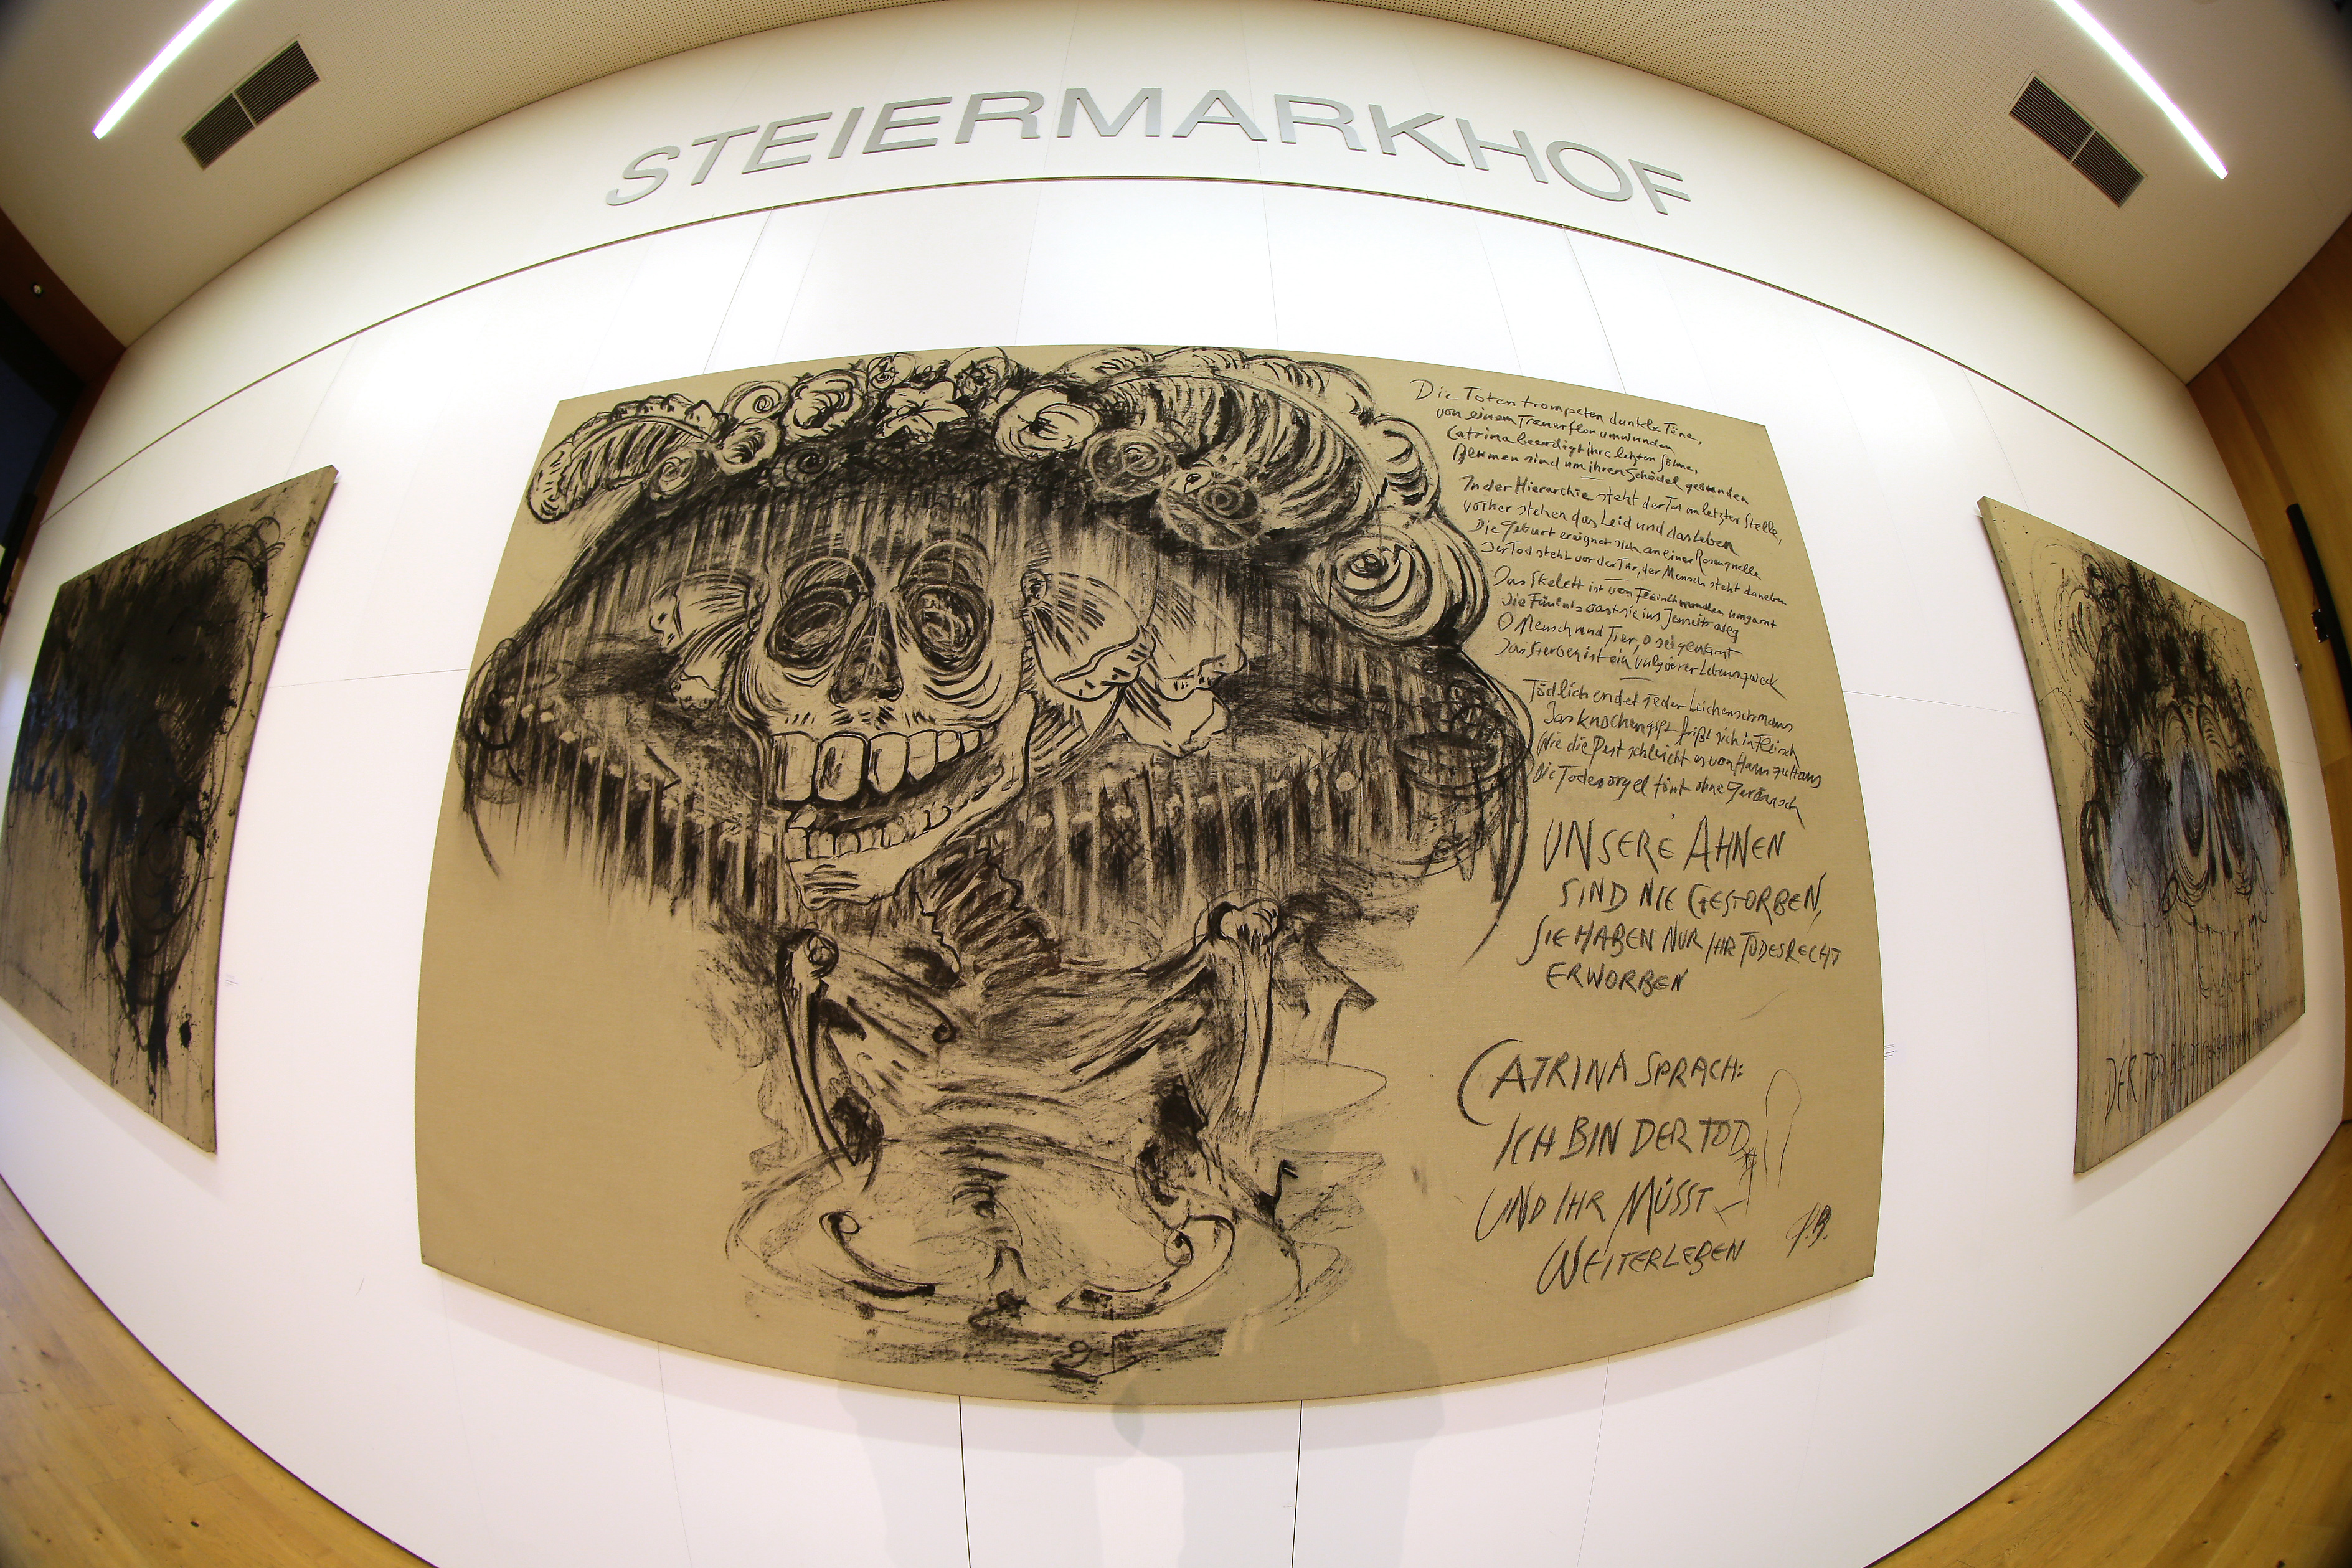 STEIERMARKHOF
Die Totentrompeten dunkle Töne,
von einem Trauerflor umwunden
Catrina beerdigt ihre letzten Söhne,
Blumen sind um ihren Schädel gewunden
In der Hierarchie steht der Tod an letzter Stelle,
vorher stehen das Leid und das Leben
Die Geburt ereignet sich an einer Rosenquelle
Der Tod steht vor der Tür, der Mensch steht daneben
Das Skelett ist von Fleischwunden umgarnt
Die Fäulnis ins Jenseits weg
O Mensch und Tier, o sei gewarnt
Das Sterben ist ein Lebenszweck
Tödlich endet jeder Leichenschmaus
Das Knochengift frißt sich in Fleisch
Wie die Pest schleicht es von Haus zu Haus
Die Todesorgel tönt ohne Geräusch
UNSERE AHNEN
SIND NIE GESTORBEN,
SIE HABEN NUR IHR TODESRECHT
ERWORBEN
CATRINA SPRACH:
ICH BIN DER TOD
UND IHR MÜSST
WEITERLEBEN
DER TOD BLEIBT